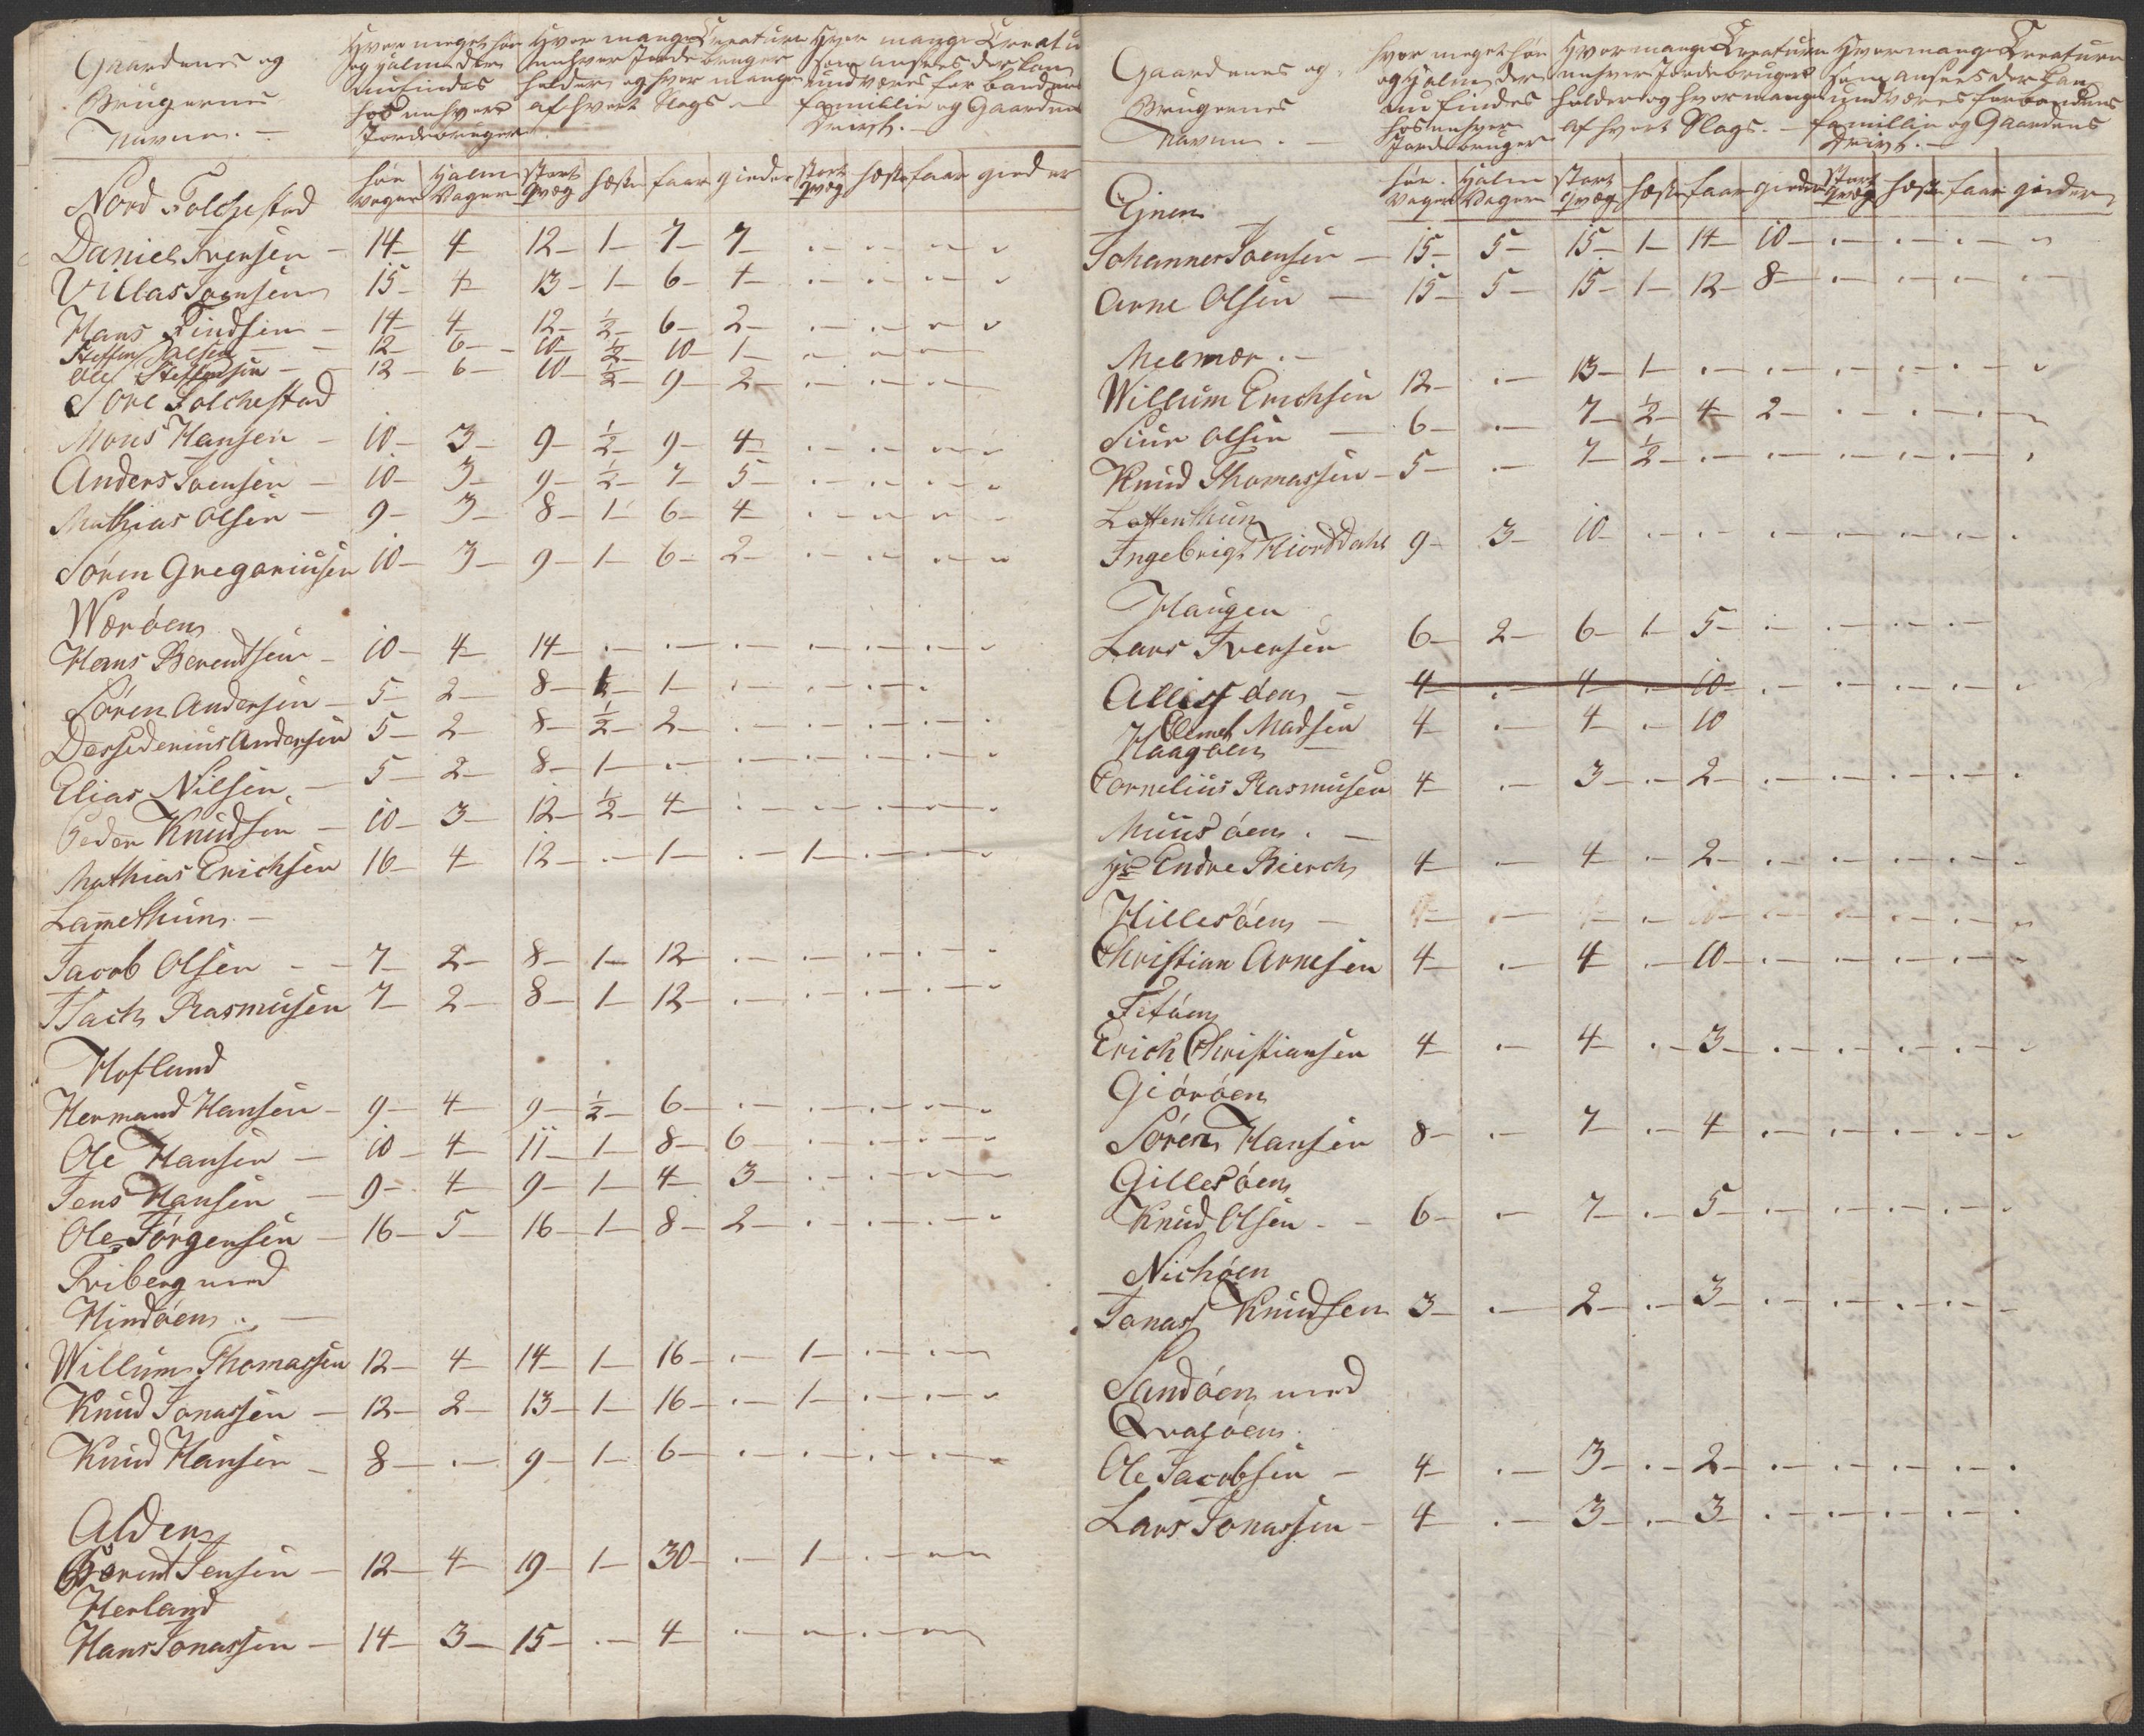 Gaardenes og
Brugernes
Navne. —
Hvor meget høe
og halm der
nu findes
hos enhver
Jordebruger
Hvor mange Creature
enhver Jordebruger
holder og hvor mange
af hvert Slags —
Hvor mange Creatu
som ansees der kan
undværes for bondens
familie og Gaardens
Drivt. —
høe
voger
Halm
Voger
stort
qvæg
hæste
faar
gieder
stort
qvæg
hæste
faar
gieder
Nord Folchestad
Daniel Iversen — 14 — 4 12 — 1 — 7 — 7 — . — . — . — .
Villas Joensen 15 — 4 13 — 1 — 6 — 4 — . — . — . — .
Hans Findsen — 14 — 4 — 12 — ½ — 6 — 2 — . — . — . — .
Steffen Olsen — 12 — 6 — 10 — ½ — 10 — 1 — . — . — . —
Ole Steffensen — 12 — 6 — 10 — ½ — 9 — 2 — . — . — . —
Søre Folchestad
Mons Hansen — 10 — 3 — 9 — ½ — 9 — 4 — . — . — . — .
Anders Joensen — 10 — 3 — 9 — ½ — 7 — 5 — . — . — . — .
Mathias Olsen — 9 — 3 — 8 — 1 — 6 — 4 — . — . — . — .
Søren Gregoriusen 10 — 3 — 9 — 1 — 6 — 2 — . — . — . — .
Værøen
Hans Berentsen — 10 — 4 — 14 — . — . — . — . — . — . — .
Søren Andersen — 5 — 2 — 8 — ½ — 1 — . — . — . — .
Dessiderius Andersen 5 — 2 — 8 — ½ — 2 — . — . — . — . — .
Elias Nilsen — 5 — 2 — 8 — 1 — . — . — . — . — . — .
Peder Knudsen — 10 — 3 — 12 — ½ — 4 — . — . — . — . — .
Mathias Erichsen 16 — 4 — 12 — . — 1 — . — 1 — . — . — .
Lammethun —
Jacob Olsen — — 7 — 2 — 8 — 1 — 12 — . — . — . — . — .
Isach Rasmusen 7 — 2 — 8 — 1 — 12 — . — . — . — . — .
Hofland
Hermand Hansen — 9 — 4 — 9 — ½ — 6 — . — . — . — . — .
Ole Hansen — 10 — 4 — 11 — 1 — 8 — 6 — . — . — . — .
Jens Hansen — 9 — 4 — 9 — 1 — 4 — 3 — . — . — . —
Ole Jørgensen — 16 — 5 — 16 — 1 — 8 — 2 — . — . — . — .
Friberg med
Hindøen . —
Willum Thomassen 12 — 4 — 14 — 1 — 16 — . — 1 — . — . —
Knud Jonassen — 12 — 2 — 13 — 1 — 16 — . — 1 — . — . — .
Knud Hansen — 8 — . — 9 — 1 — 6 — . — . — . — . — .
Alden
Berent Jensen — 12 — 4 — 19 — 1 — 30 — . — 1 — . — . —
Herland
Hans Jonassen — 14 — 3 — 15 — . — 4 — . — . — . — . —
Gaardenes og
Brugernes
Navne. —
hvor meget høe
og Halm der
nu findes
hos enhver
Jordebruger
Hvor mange Creature
enhver Jordebruger
holder og hvor mange
af hvert Slags. —
Hvor mange Creature
som ansees der kan
undværes for bondens
famillie og Gaardens
Drivt. —
høe.
Voger
Halm
Voger
stort
qvæg
hæste
faar
gieder
stort
qvæg
hæste
faar
gieder
Ejnen
Johannes Joensen — 15 — 5 — 15 — 1 — 14 — 10 — . — . — . — .
Arne Olsen — 15 — 5 — 15 — 1 — 12 — 8 — . — . — . —
Melvær . —
Willum Erichsen 12 — . — 13 — 1 — . — . — . — . — . — .
Siur Olsen — 6 — . — 7 — ½ — 4 — 2 — . — . — . —
Knud Thomassen — 5 — . — 7 — ½ — . — . — . — . — . — .
Lættenthun
Ingebrigt Hiorddahl 9 — 3 — 10 — . — . — . — . — . — . — .
Haugen
Lars Iversen 6 — 2 — 6 — 1 — 5 — . — . — . — . —
Allisøen — 4 — . — 4 — . — 10 — . — . — . — . — .
Clemet Madsen 4 — . — 4 — . — 10
Haagøen —
Cornelius Rasmusen 4 — . — 3 — . — 2 — . — . — . — . — .
Muusøen . —
Hr Endre Bierch 4 — . — 4 — . — 2 — . — . — . — . — .
Hillesøen —
Christian Arnesen 4 — . — 4 — . — 10 — . — . — . — . — .
Fetøen
Erich Christiansen 4 — . — 4 — . — 3 — . — . — . — . — .
Giørøen
Søren Hansen 8 — . — 7 — . — 4 — . — . — . — . — .
Gillesøen
Knud Olsen — — 6 — . — 7 — . — 5 — . — . — . — . — .
Nichøen
Jonas Knudsen 3 — . — 2 — . — 3 — . — . — . — . —
Sandøen med
Qvaløen
Ole Jacobsen — 4 — . — 3 — . — 2 — . — . — . — . — .
Lars Jonassen — 4 — . — 3 — . — 3 — . — . — . — . — .